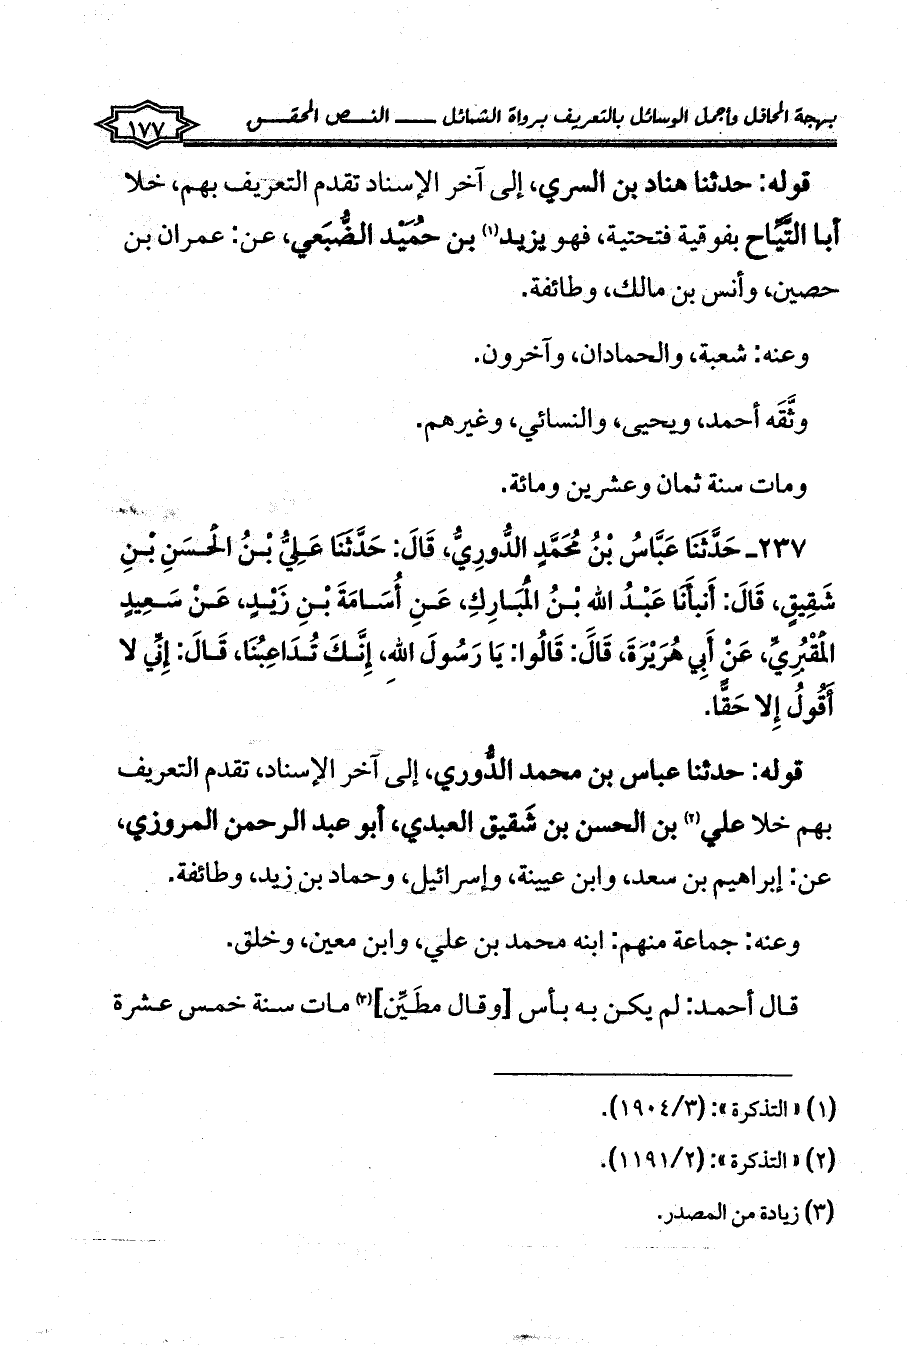 بهجة المحافل وأجمل الوسائل بالتعريف برواة الشمائل ــــ النــص المحقــق
١٧٧
قوله: حدثنا هناد بن السري، إلى آخر الإسناد تقدم التعريف بهم، خلا
أبا التَّيَّاح بفوقية فتحتية، فهو يزيد(١) بن حُمَيْد الضُّبَعي، عن: عمران بن
حصين، وأنس بن مالك، وطائفة.
وعنه: شعبة، والحمادان، وآخرون.
وثَّقَه أحمد، ويحيى، والنسائي، وغيرهم.
ومات سنة ثمان وعشرين ومائة.
٢٣٧ـ حَدَّثَنَا عَبَّاسُ بْنُ مُحَمَّدٍ الدُّورِيُّ، قَالَ: حَدَّثَنَا عَلِيُّ بْنُ الحُسَنِ بْنِ
شَقِيقٍ، قَالَ: أَنبأَنَا عَبْدُ الله بْنُ المُبَارِكِ، عَنِ أُسَامَةَ بْنِ زَيْدٍ، عَنْ سَعِيدٍ
المُقْبُرِيِّ، عَنْ أَبِي هُرَيْرَةَ، قَالَ: قَالُوا: يَا رَسُولَ اللهِ، إِنَّكَ تُدَاعِبُنَا، قَالَ: إِنِّي لا
أَقُولُ إِلا حَقًّا.
قوله: حدثنا عباس بن محمد الدُّوري، إلى آخر الإسناد، تقدم التعريف
بهم خلا علي(٢) بن الحسن بن شَقيق العبدي، أبو عبد الرحمن المروزي،
عن: إبراهيم بن سعد، وابن عيينة، وإسرائيل، وحماد بن زيد، وطائفة.
وعنه: جماعة منهم: ابنه محمد بن علي، وابن معين، وخلق.
قال أحمد: لم يكن به بأس [وقال مطَيِّن](٣) مات سنة خمس عشرة
(١) «التذكرة»: (١٩٠٤/٣).
(٢) «التذكرة»: (١١٩١/٢).
(٣) زيادة من المصدر.